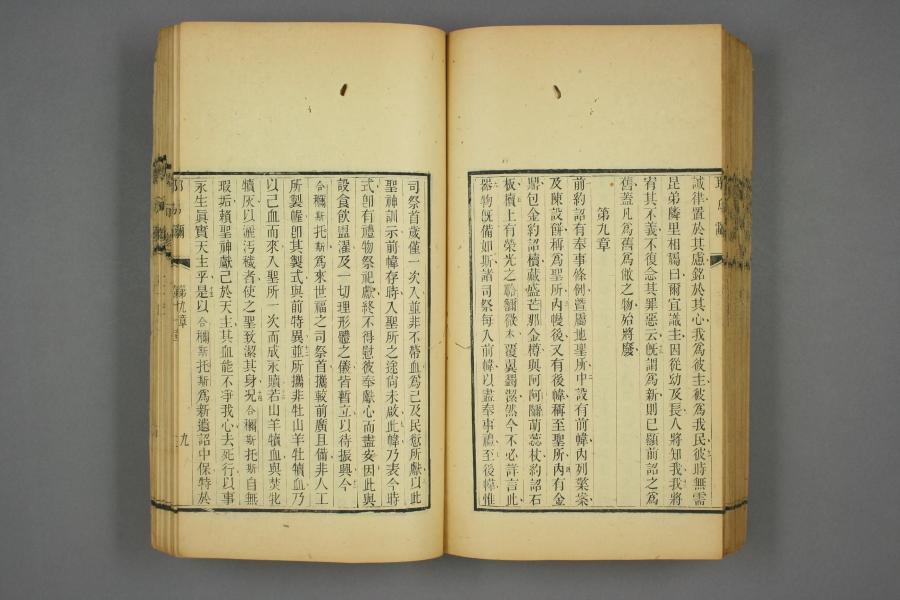 誡律置於其慮銘於其心我為彼主彼為我民彼時無需
昆弟隣里相勗曰爾宜識主因從幼及長人將知我我將
宥其不義不復念其罪惡云旣謂為新則已顯前詔之為
舊蓋凡為舊為敝之物殆將廢
第九章
前約詔有奉事條例曁屬地聖所中設有前幃內列燈案
及陳設餅稱為聖所內幔後又有後幃稱至聖所內有金
鼎包金約詔櫝藏盛芒那金樽與阿阿隴萌蕊杖約詔石
板櫝上有榮光之 覆翼 然今不必詳言此
器物旣備如斯諸司祭每入前幃以盡奉事禮至後幃惟
司祭首歲僅一次入並非不帶血為己及民愆所獻以此
聖神訓示前幃存時入聖所之途尙未啟此幃乃表今時
式卽有禮物祭祀獻終不得慰彼奉獻心而盡妥因此與
設食飮盥濯及一切理形體之儀皆暫立以待振興今
合穪斯托斯為來世福之司祭首攜較前廣且備非人工
所製幄卽其製式與前特異並所攜非牡山羊牡犢血乃
以己血而來入聖所一次而成永贖若山羊犢血與焚牝
犢灰以灑汚穢者使之聖致潔其身况合穪斯托斯自無
瑕垢賴聖神獻己於天主其血能不爭我心去死行以事
永生眞實天主乎是以合穪斯托斯為新遺詔中保特於
第九章
九